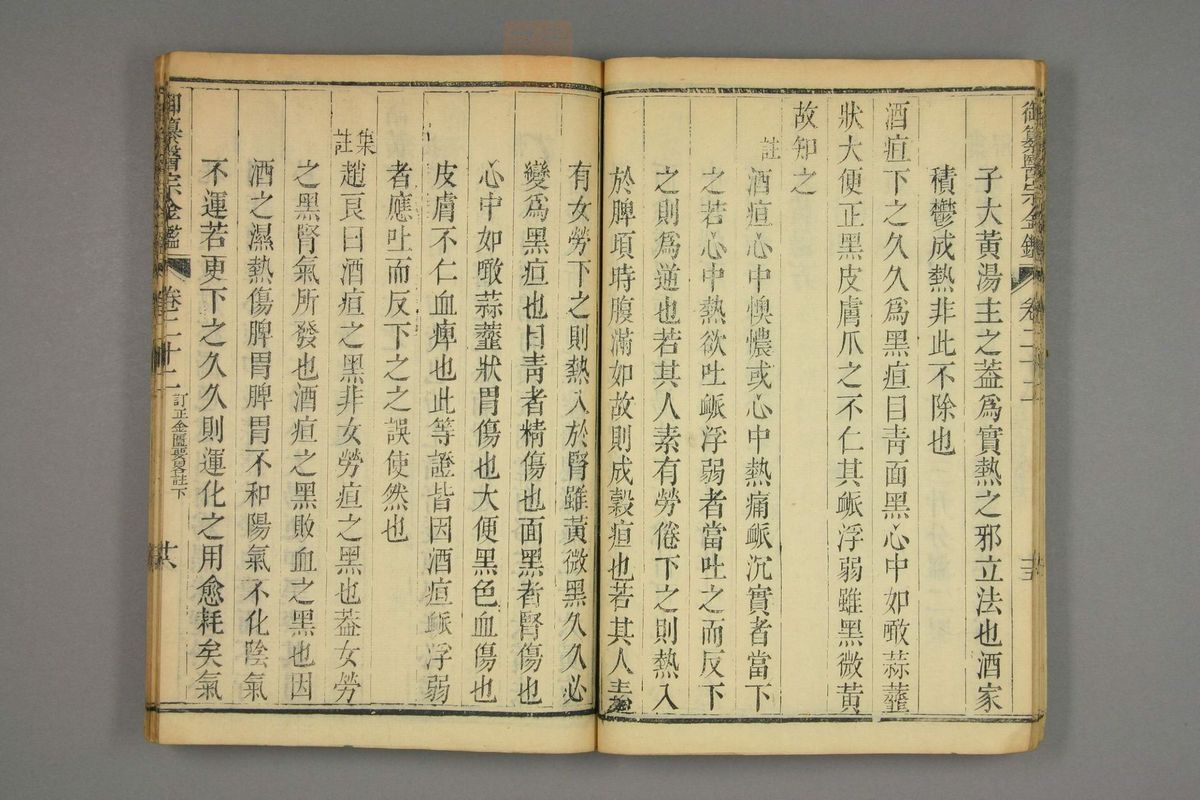 御纂醫宗金鑑 卷二十二
子大黃湯主之葢爲實熱之邪立法也酒家
積鬱成熱非此不除也
酒疸下之久久爲黑疸目靑面黑心中如噉蒜虀
狀大便正黑皮膚爪之不仁其衇浮弱雖黑微黃
故知之
註酒疸心中懊憹或心中熱痛衇沉實者當下
之若心中熱欲吐衇浮弱者當吐之而反下
之則爲逆也若其人素有勞倦下之則熱入
於脾頃時腹滿如故則成穀疸也若其人
有女勞下之則熱入於腎雖黃微黑久久必
變爲黑疸也目靑者精傷也面黑者腎傷也
心中如噉蒜虀狀胃傷也大便黑色血傷也
皮膚不仁血痺也此等證皆因酒疸衇浮弱
者應吐而反下之之誤使然也
集註趙良曰酒疸之黑非女勞疸之黑也葢女勞
之黑腎氣所發也酒疸之黑敗血之黑也因
酒之濕熱傷脾胃脾胃不和陽氣不化陰氣
不運若更下之久久則運化之用愈耗矣氣
御纂醫宗金鑑 卷二十二 訂正金匱要畧註下 共